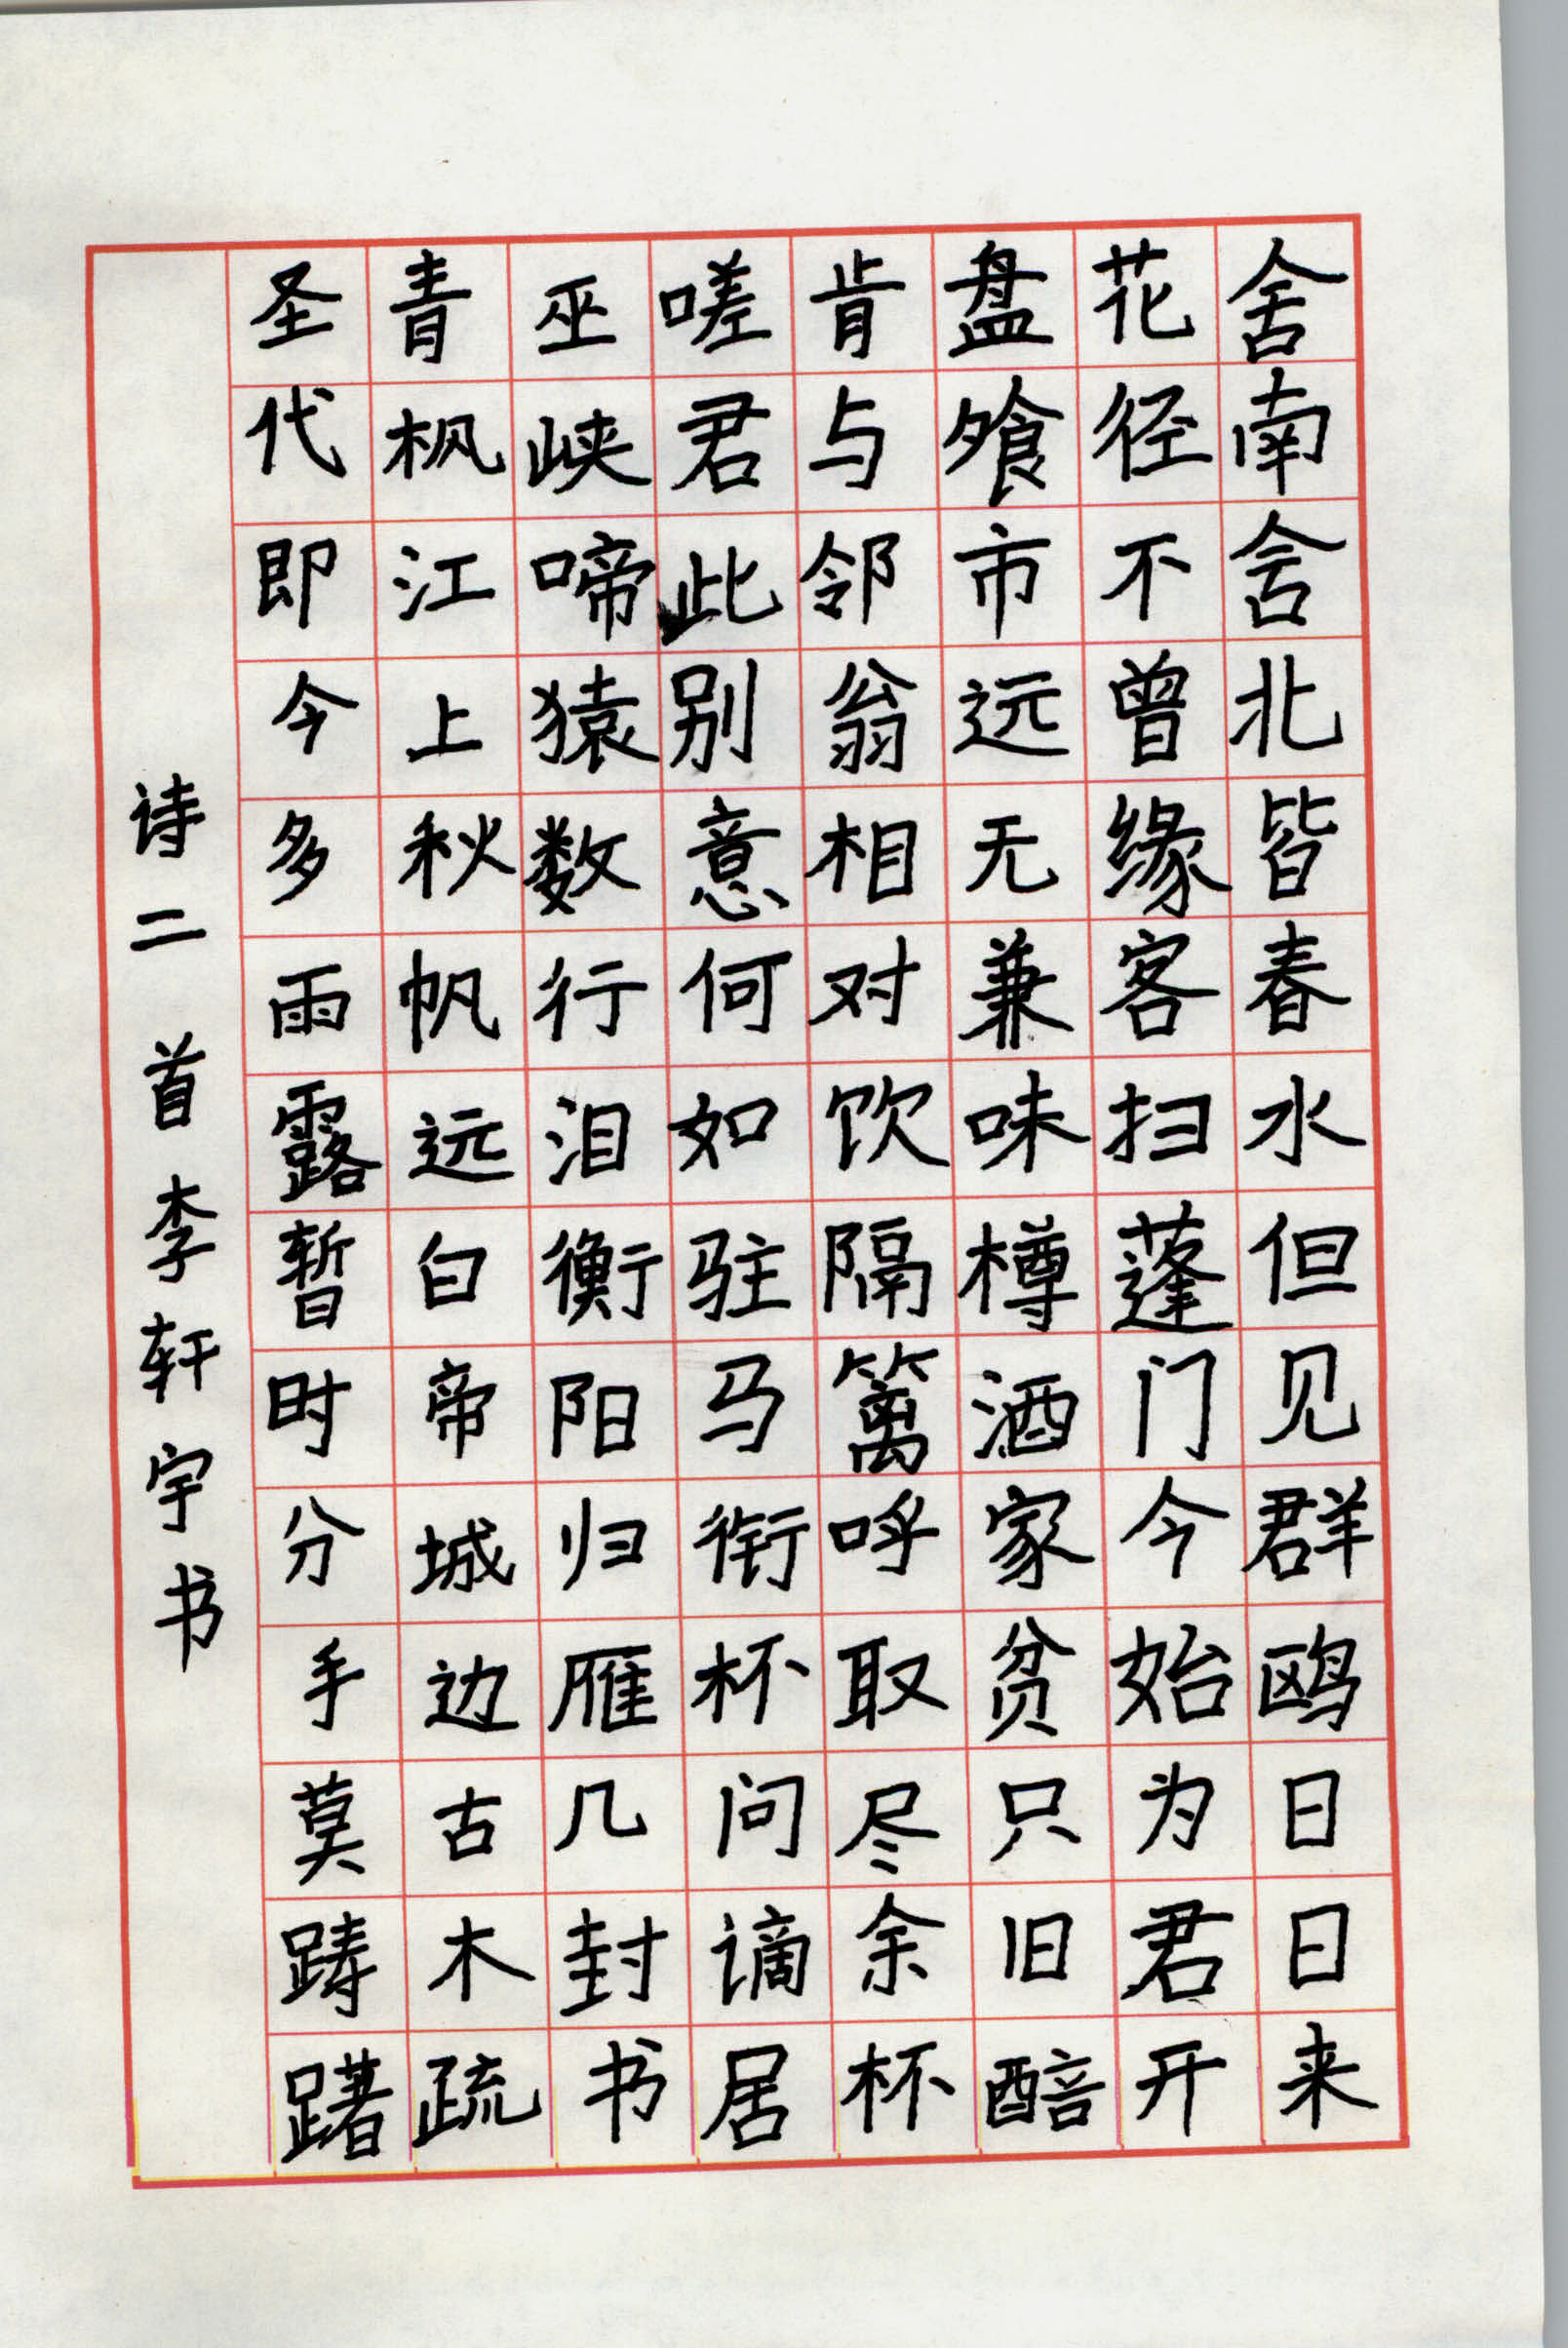 舍南舍北皆春水但见群鸥日日来
花径不曾缘客扫蓬门今始为君开
盘飧市远无兼味樽酒家贫只旧醅
肯与邻翁相对饮隔篱呼取尽余杯
嗟君此别意何如驻马衔杯问谪居
巫峡啼猿数行泪衡阳归雁几封书
青枫江上秋帆远白帝城边古木疏
圣代即今多雨露暂时分手莫踌躇
诗二首李轩宇书